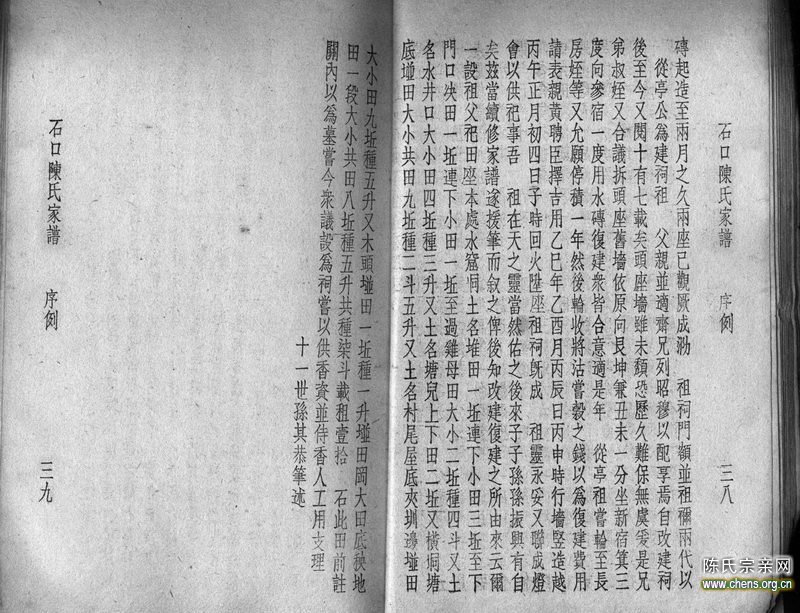 石口陳氏家譜 序例 三八
磚起造至兩月之久兩座已觀厥成泐 祖祠門額並祖禰兩代以
從亭公為建祠祖 父親並適齋兄列昭穆以配享焉自改建祠
後至今又閱十有七載矣頭座墻雖未頹恐歷久難保無虞爰是兄
弟叔姪又合議拆頭座舊墻依原向艮坤兼丑未一分坐新宿箕三
度向參宿一度用水磚復建眾皆合意適是年 從亭祖嘗輪至長
房姪等又允願停積一年然後輪收將沽嘗穀之錢以為復建費用
請表親黃聘臣擇吉用乙巳年乙酉月丙辰日丙申時行墻竪造越
丙午正月初四日子時回火陞座祖祠旣成 祖靈永妥又聯成燈
會以供祀事吾 祖在天之靈當然佑之後來子子孫孫振興有自
矣茲當續修家譜遂援筆而叙之俾後知改建復建之所由來云爾
一設祖父祀田座本處水窟垌土名堆田一坵連下小田三坵至下
門口泱田一坵連下小田一坵至過雞母田大小二坵種四斗又土
名水井口大小田四坵種三升又土名塘兒上下田二坵又橫垌塘
底塸田大小共田九坵種二斗五升又土名村尾屋底夾圳邊塸田
大小田九坵種五升又木頭塸田一坵種一升塸田岡大田底秧地
田一段大小共田八坵種五升共種柒斗載租壹拾 石此田前註
關內以為墓嘗今衆議設為祠嘗以供香資並侍香人工用支理
十一世孫其恭筆述
石口陳氏家譜 序例 三九
陈氏宗亲网
www.chens.org.cn